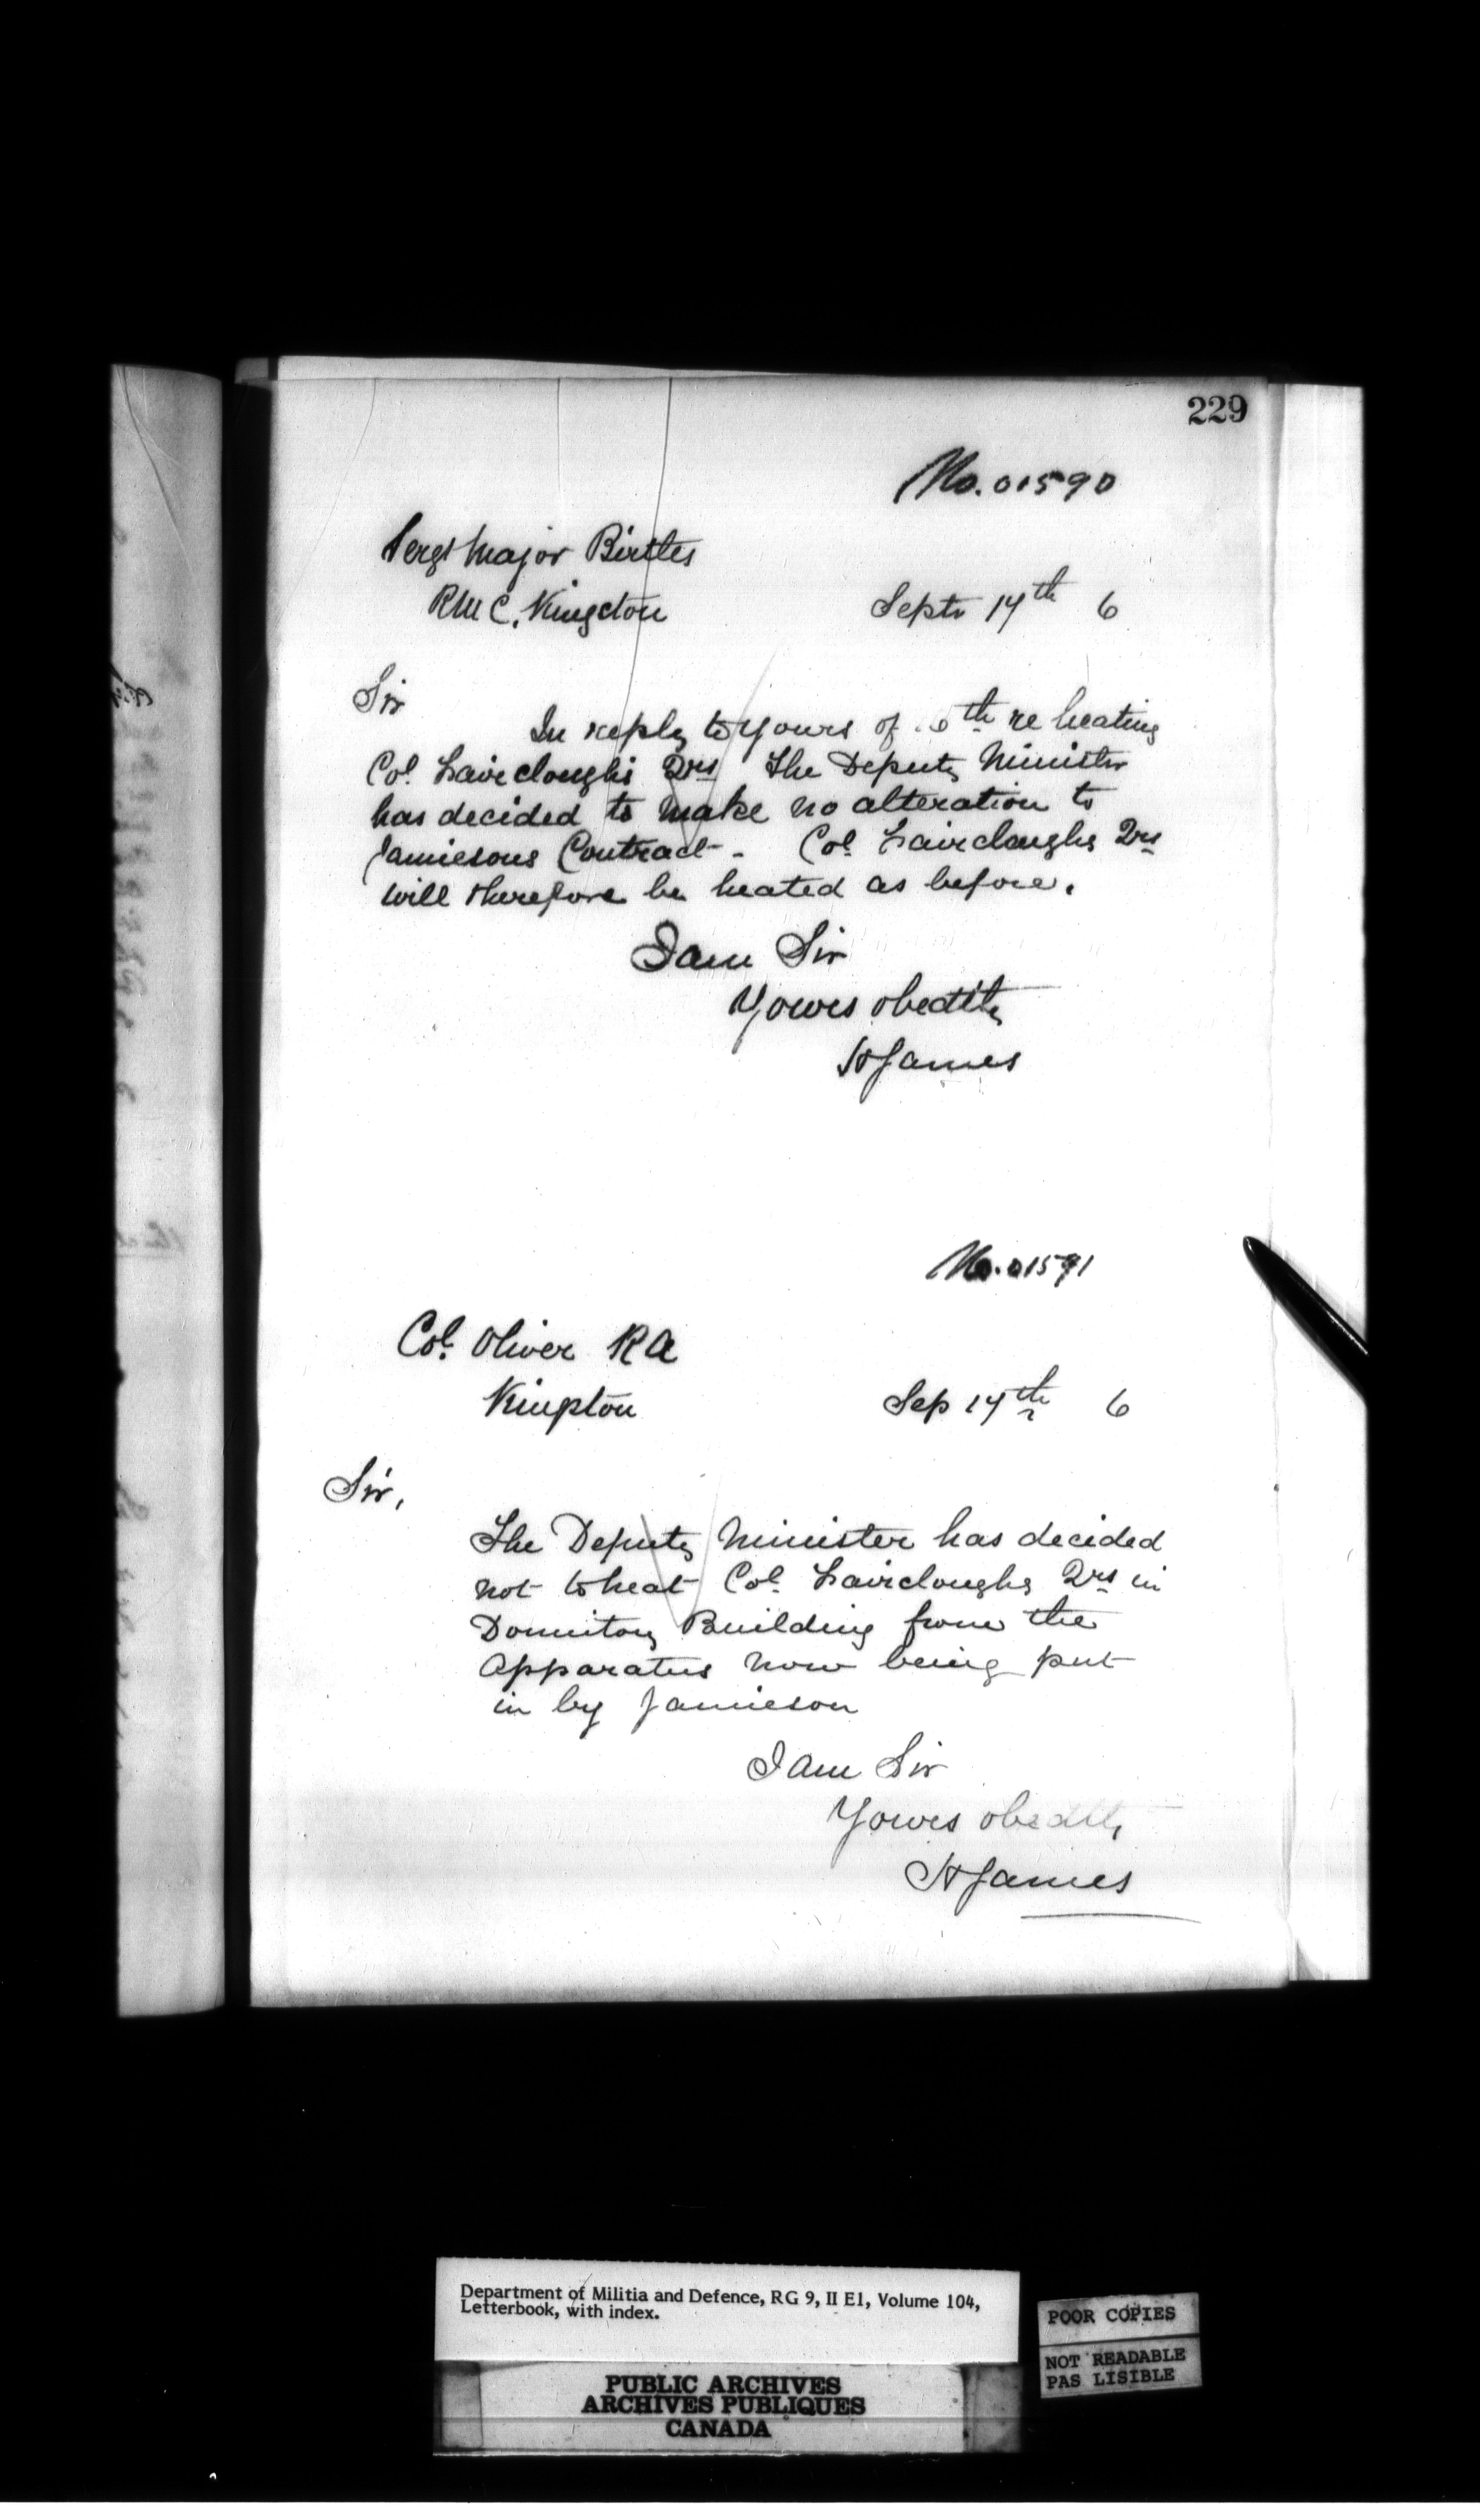 229
No. 01590
Sergt Major Birtles
RMC. Kingston
Septr 14th 6
Sir
In reply to yours of 6th re heating
Col. Fairclough's Qrs The Deputy Minister
has decided to make no alteration to
Jamiesons Contract - Col. Faircloughs Qrs
will therefore be heated as before.
I am Sir
Yours obedtly
H James
No. 01591
Col. Oliver RA
Kingston
Sep 14th 6
Sir,
The Deputy Minister has decided
not to heat Col. Faircloughs Qrs in
Dormitory Building from the
Apparatus now being put
in by Jamieson
I am Sir
Yours obedtly
H James
Department of Militia and Defence, RG 9, II E1, Volume 104,
Letterbook, with index.
PUBLIC ARCHIVES
ARCHIVES PUBLIQUES
CANADA
POOR COPIES
NOT READABLE
PAS LISIBLE